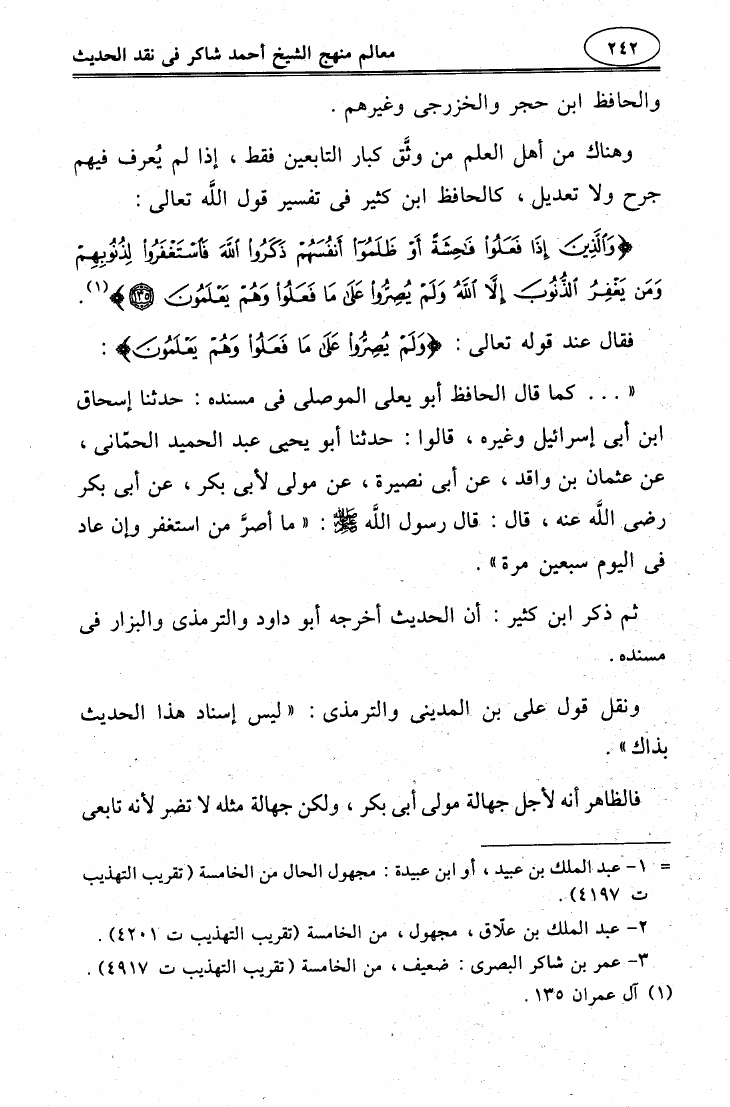 ٢٤٢
معالم منهج الشيخ أحمد شاكر فى نقد الحديث
والحافظ ابن حجر والخزرجى وغيرهم .
وهناك من أهل العلم من وثَّق كبار التابعين فقط ، إذا لم يُعرف فيهم
جرح ولا تعديل ، كالحافظ ابن كثير فى تفسير قول اللَّه تعالى :
﴿وَٱلَّذِينَ إِذَا فَعَلُوا۟ فَـٰحِشَةً أَوْ ظَلَمُوٓا۟ أَنفُسَهُمْ ذَكَرُوا۟ ٱللَّهَ فَٱسْتَغْفَرُوا۟ لِذُنُوبِهِمْ
وَمَن يَغْفِرُ ٱلذُّنُوبَ إِلَّا ٱللَّهُ وَلَمْ يُصِرُّوا۟ عَلَىٰ مَا فَعَلُوا۟ وَهُمْ يَعْلَمُونَ ١٣٥﴾(١).
فقال عند قوله تعالى : ﴿وَلَمْ يُصِرُّوا۟ عَلَىٰ مَا فَعَلُوا۟ وَهُمْ يَعْلَمُونَ﴾ :
« . . . كما قال الحافظ أبو يعلى الموصلى فى مسنده : حدثنا إسحاق
ابن أبى إسرائيل وغيره ، قالوا : حدثنا أبو يحيى عبد الحميد الحمّانى ،
عن عثمان بن واقد ، عن أبى نصيرة ، عن مولى لأبى بكر ، عن أبى بكر
رضى اللَّه عنه ، قال : قال رسول اللَّه ﷺ : « ما أصرَّ من استغفر وإن عاد
فى اليوم سبعين مرة» .
ثم ذكر ابن كثير : أن الحديث أخرجه أبو داود والترمذى والبزار فى
مسنده .
ونقل قول على بن المدينى والترمذى : « ليس إسناد هذا الحديث
بذاك» .
فالظاهر أنه لأجل جهالة مولى أبى بكر ، ولكن جهالة مثله لا تضر لأنه تابعى
= ١- عبد الملك بن عبيد ، أو ابن عبيدة : مجهول الحال من الخامسة ( تقريب التهذيب
ت ٤١٩٧) .
٢- عبد الملك بن علّاق ، مجهول ، من الخامسة (تقريب التهذيب ت ٤٢٠١) .
٣- عمر بن شاكر البصرى : ضعيف ، من الخامسة ( تقريب التهذيب ت ٤٩١٧) .
(١) آل عمران ١٣٥ .